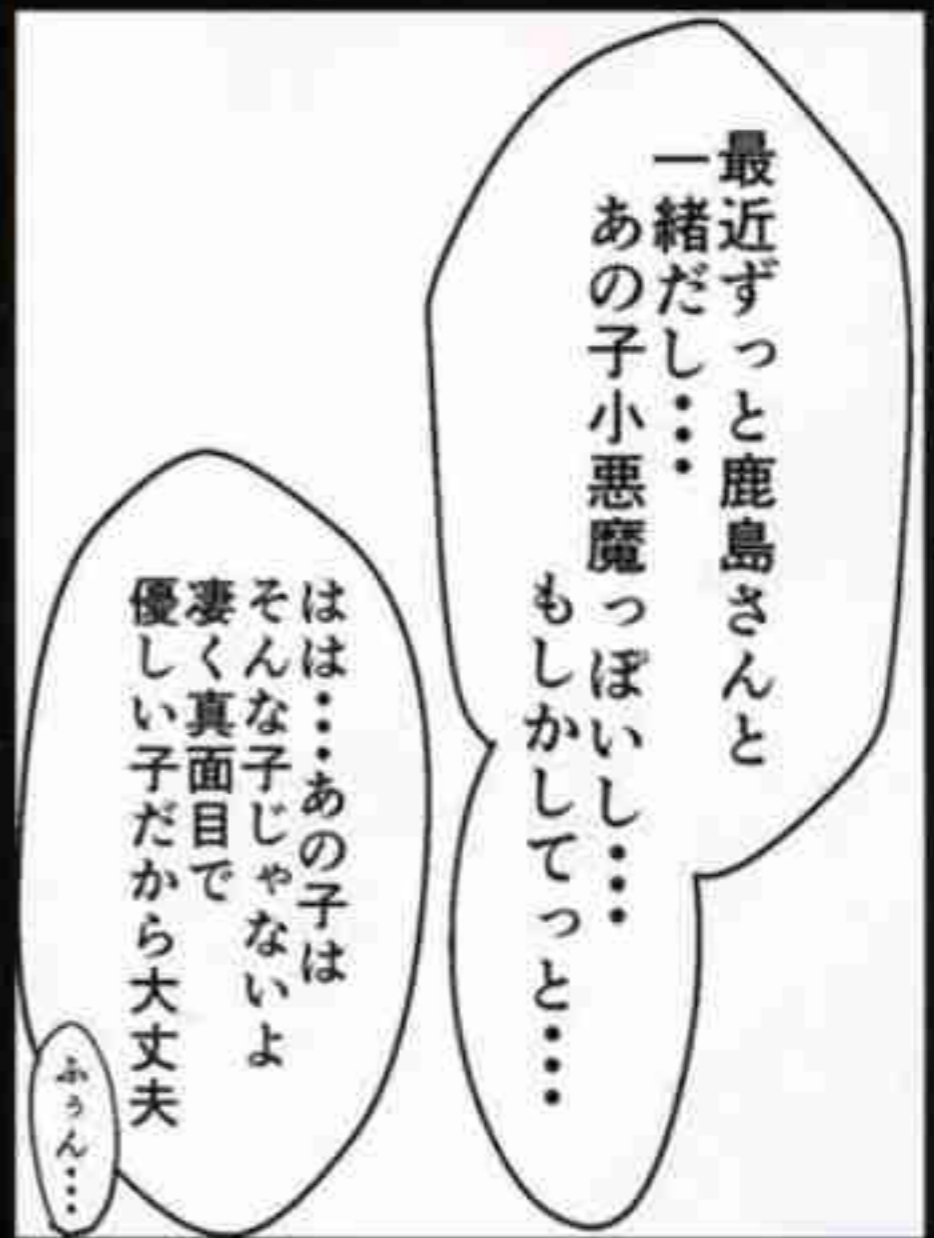 最近ずっと鹿島さんと
一緒だし・・・
あの子小悪魔っぽいし・・・
もしかしてっと・・・
はは・・・あの子は
そんな子じゃないよ
凄く真面目で
優しい子だから大丈夫
ふぅん・・・